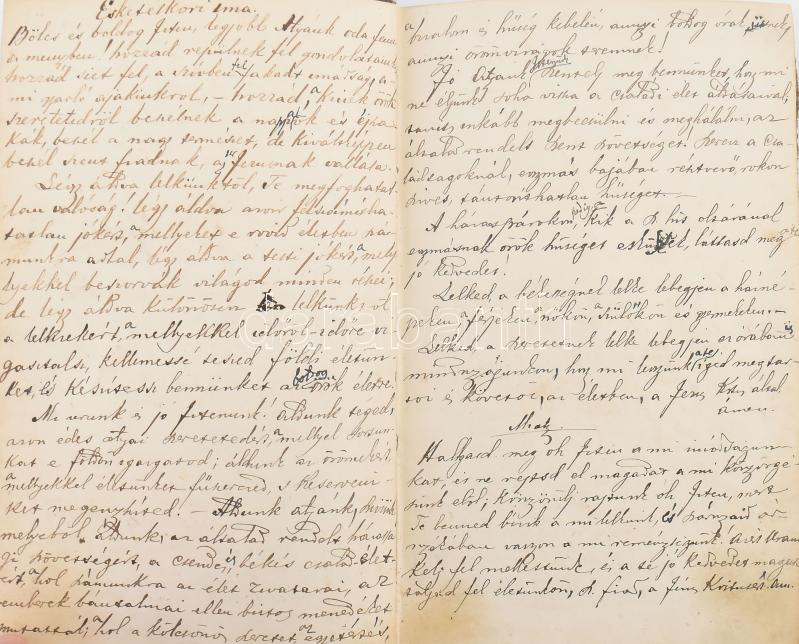 Esketéskori ima.
Bölcs és boldog Isten, legjobb Atyánk oda fenn
a menyben! hozzád repülnek fel gondolataink
hozzád siet fel, a szívben fel fakadt imádság, a
mi gyarló ajakinkról, – hozzád a kinek örök
szeretetedről beszélnek a nappalok és éjsza
kák, beszél a nagy természet, de kiváltképpen
beszél szent fiadnak, a Jézusnak vallása.
Légy áldva lelkünktől, Te megfoghatat
lan valóság! légy áldva azon felszámlálha-
tatlan jókért, a mellyeket e rövid életben szá-
munkra adtál, légy áldva a testi jókért, a mely
lyekkel beszórvák világod minden részei;
de légy áldva különösen lelkünktől
a lelkiekért, a mellyekkel időről-időre vi
gasztalsz, kellemessé teszed földi életün-
ket, és készítessz bennünket az örök életre. boldog
Mi urunk és jó Istenünk! áldunk téged,
azon édes atyai szeretetedért, a mellyel sorsun-
kat e földön igazgatod; áldunk az örömekért
a mellyekkel életünket fűszerezed, s keservein-
ket megenyhíted. – Áldunk atyánk, szívünk
melyéből áldunk, az általad rendelt házassá
gi szövetségért, a csendes és békés családi élet-
ért, a hol számunkra az élet zivatarai, az
emberek bántalmai ellen biztos menedéket
mutattál; a hol a kölcsönös szeretet, az egyetértés,
a bizalom és hűség kebelén, annyi boldog órát
annyi örömvirágok teremnek!
Jó Atyánk! Istenünk Szentelj meg bennünket, hogy mi
ne éljünk soha vissza a családi élet áldásaival,
tanuljuk inkább megbecsülni és meghálálni, az
általad rendelt szent szövetséget! Szerezz a csa-
ládtagoknál, egymás bajában résztvevő, rokon
szíves, tántoríthatlan hűséget. –
A házaspárokon, kik a D. hű oltáránál
egymásnak örök hűséget esküdtek, láttasd meg
jó kedvedet.
Lelked, a békességnek lelke lebegjen a házné-
peken, a fejeken, a nőkön, a szülőkön és gyermekeken. –
Lelked, a szeretetnek lelke lebegjen ez órában és
mindnyájunkon, hogy mi legyünk a te igéd megtar-
tói és követői, az életben, a Jézus Krisztus által.
amen.
Miatyánk
Hallgasd meg óh Isten a mi imádságun-
kat, és ne rejtsd el magadat a mi könyörgé
sünk elől; könyörülj rajtunk óh Isten, mert
te benned bízik a mi lelkünk, és szárnyaid ár-
nyékában vagyon a mi reménységünk! azért Uram
kelj fel mellettünk, és a te jó kedvedet magasz-
taljad fel életünkön, sz. fiad, a Jézus Krisztusért Am.